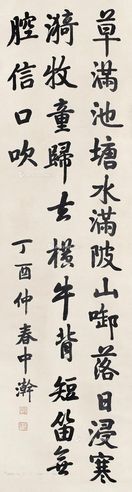 草滿池塘水滿陂山啣落日浸寒
漪牧童歸去橫牛背短笛無
腔信口吹
丁酉仲春中瀚